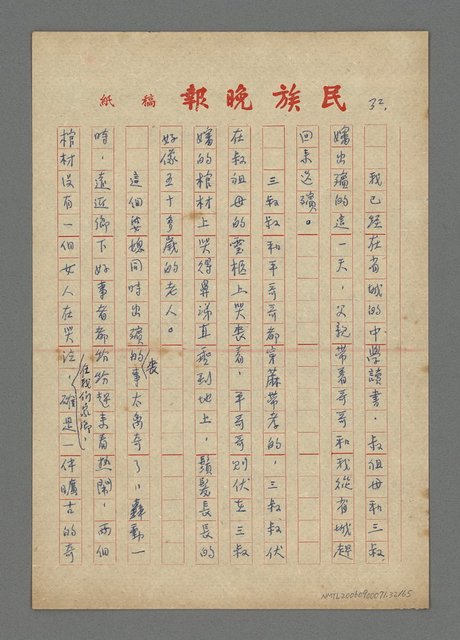 民族晚報 稿紙
32.
我已經在省城的中學讀書。叔祖母和三叔
嬸出殯的這一天，父親帶着哥哥和我從省城趕
回來送殯。
三叔叔和平哥哥都穿蔴帶孝的，三叔叔伏
在叔祖母的靈柩上哭喪着，平哥哥則伏在三叔
嬸的棺材上哭得鼻涕直垂到地上，鬚髮長長的
好像五十多歲的老人。
這個婆媳同時出殯的喪事太離奇了，轟動一
時，遠近鄉下好事者都紛紛趕來看熱鬧，兩個
棺材沒有一個女人在哭泣，在我們家鄉，確是一件曠古的奇
NMTL20060900071.32/65